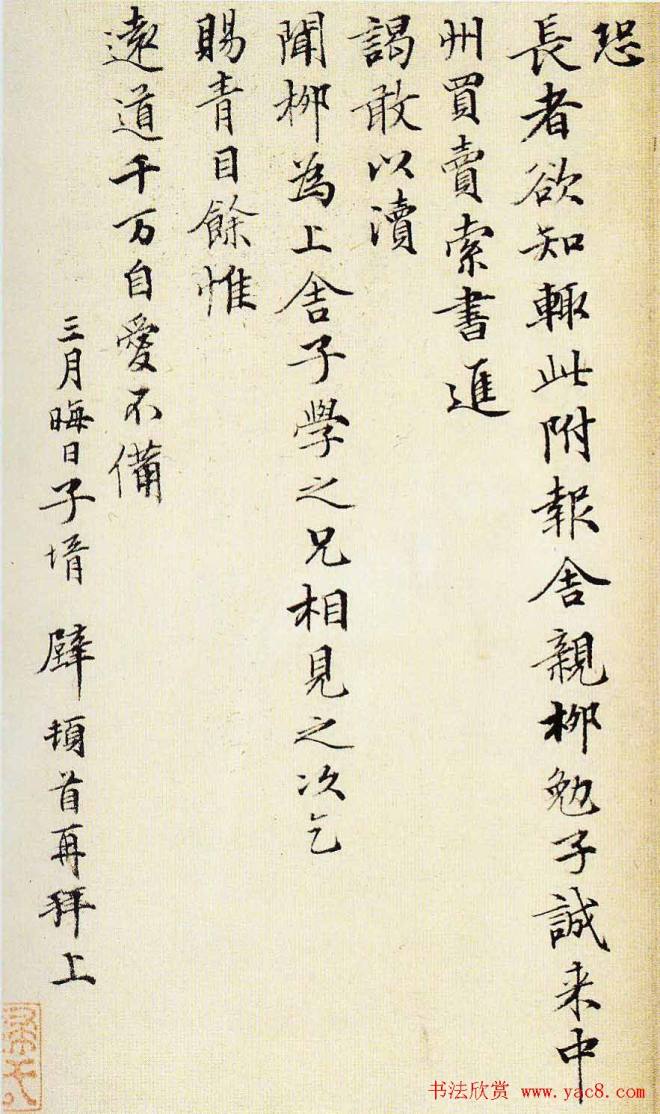 恐
長者欲知輒此附報舍親柳勉子誠来中
州買賣索書進
謁敢以瀆
聞柳為上舍子學之兄相見之次乞
賜青目餘惟
遠道千万自愛不備
三月晦日子壻 頓首再拜上
书法欣赏 www.yac8.com